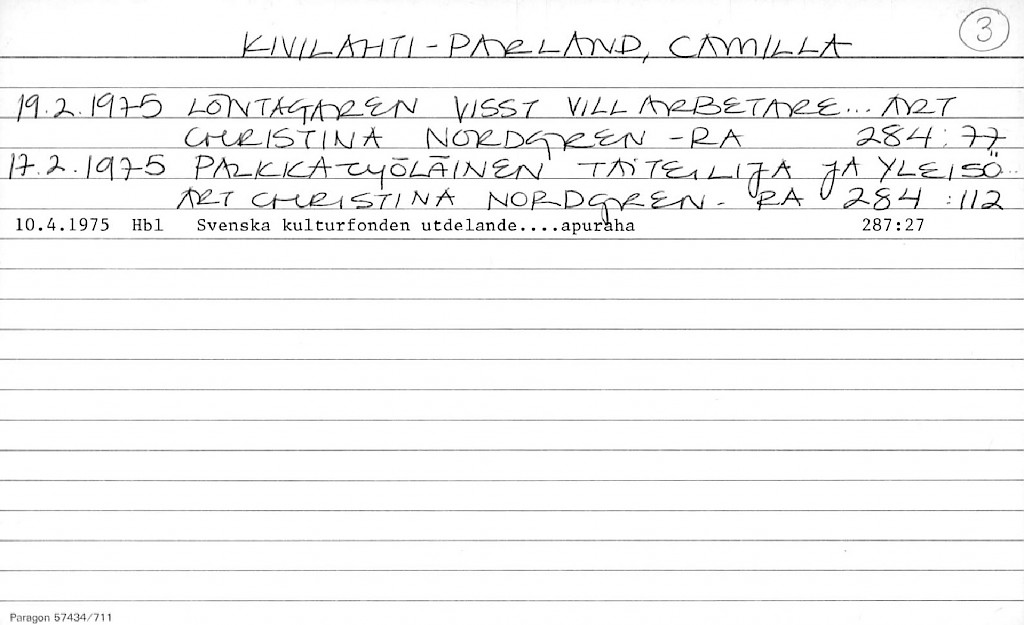 KIVILAHTI-PARLAND, CAMILLA
3
19.2.1975 LÖNTAGAREN VISST VILL ARBETARE... ART
CHRISTINA NORDGREN -RA 284:77
17.2.1975 PALKKATYÖLÄINEN TAITEILIJA JA YLEISÖ...
ART CHRISTINA NORDGREN- RA 284:112
10.4.1975 Hbl Svenska kulturfonden utdelande....apuraha 287:27
Paragon 57434/711